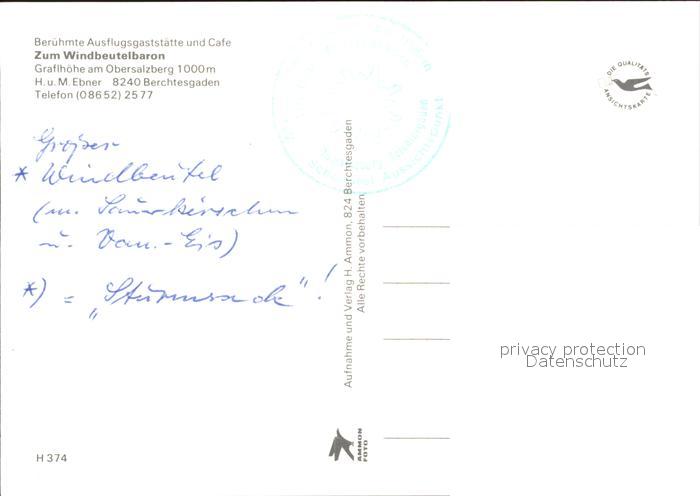 Berühmte Ausflugsgaststätte und Cafe
Zum Windbeutelbaron
Graflhöhe am Obersalzberg 1000 m
H. u. M. Ebner 8240 Berchtesgaden
Telefon (0 86 52) 25 77
DIE QUALITÄTS
ANSICHTSKARTE
Großer
* Windbeutel
(m. Sauerkirschen
u. Van.-Eis)
*) = „Sturmsack"!
Schönster Aussichtspunkt
Aufnahme und Verlag H. Ammon, 824 Berchtesgaden
Alle Rechte vorbehalten
privacy protection
Datenschutz
AMMON
FOTO
H 374